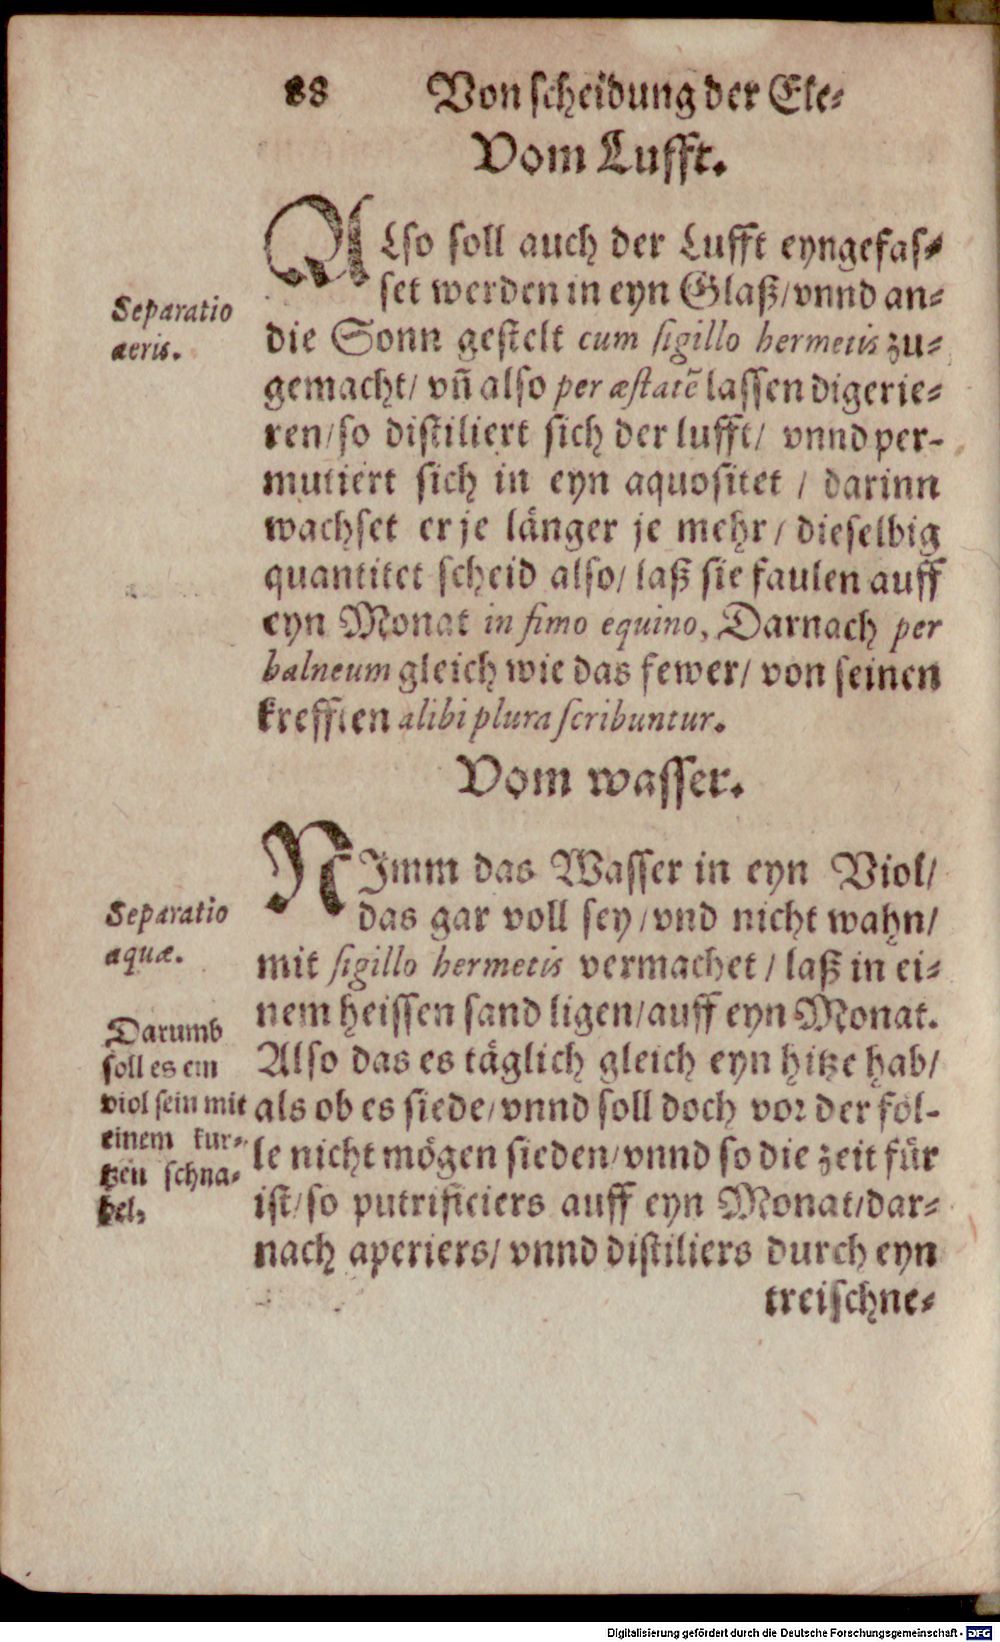 88 Von scheidung der Ele⸗
Vom Lufft.
ALso soll auch der Lufft eyngefas⸗
set werden in eyn Glaß/vnnd an⸗
Separatio
aeris.
die Sonn gestelt cum sigillo hermetis zu⸗
gemacht/ vñ also per æstatẽ lassen digerie⸗
ren/so distiliert sich der lufft/ vnnd per-
mutiert sich in eyn aquositet / darinn
wachset er je länger je mehr / dieselbig
quantitet scheid also/ laß sie faulen auff
eyn Monat in fimo equino, Darnach per
balneum gleich wie das fewer/ von seinen
krefften alibi plura scribuntur.
Vom wasser.
NImm das Wasser in eyn Viol/
das gar voll sey/vnd nicht wahn/
Separatio
aquæ.
mit sigillo hermetis vermachet / laß in ei⸗
nem heissen sand ligen/auff eyn Monat.
Also das es täglich gleich eyn hitze hab/
als ob es siede/vnnd soll doch vor der föl-
le nicht mögen sieden/vnnd so die zeit für
ist/so putrificiers auff eyn Monat/dar⸗
nach aperiers/ vnnd distiliers durch eyn
Darumb
soll es ein
viol sein mit
einem kur⸗
tzen schna⸗
bel,
treischne⸗
Digitalisierung gefördert durch die Deutsche Forschungsgemeinschaft - DFG